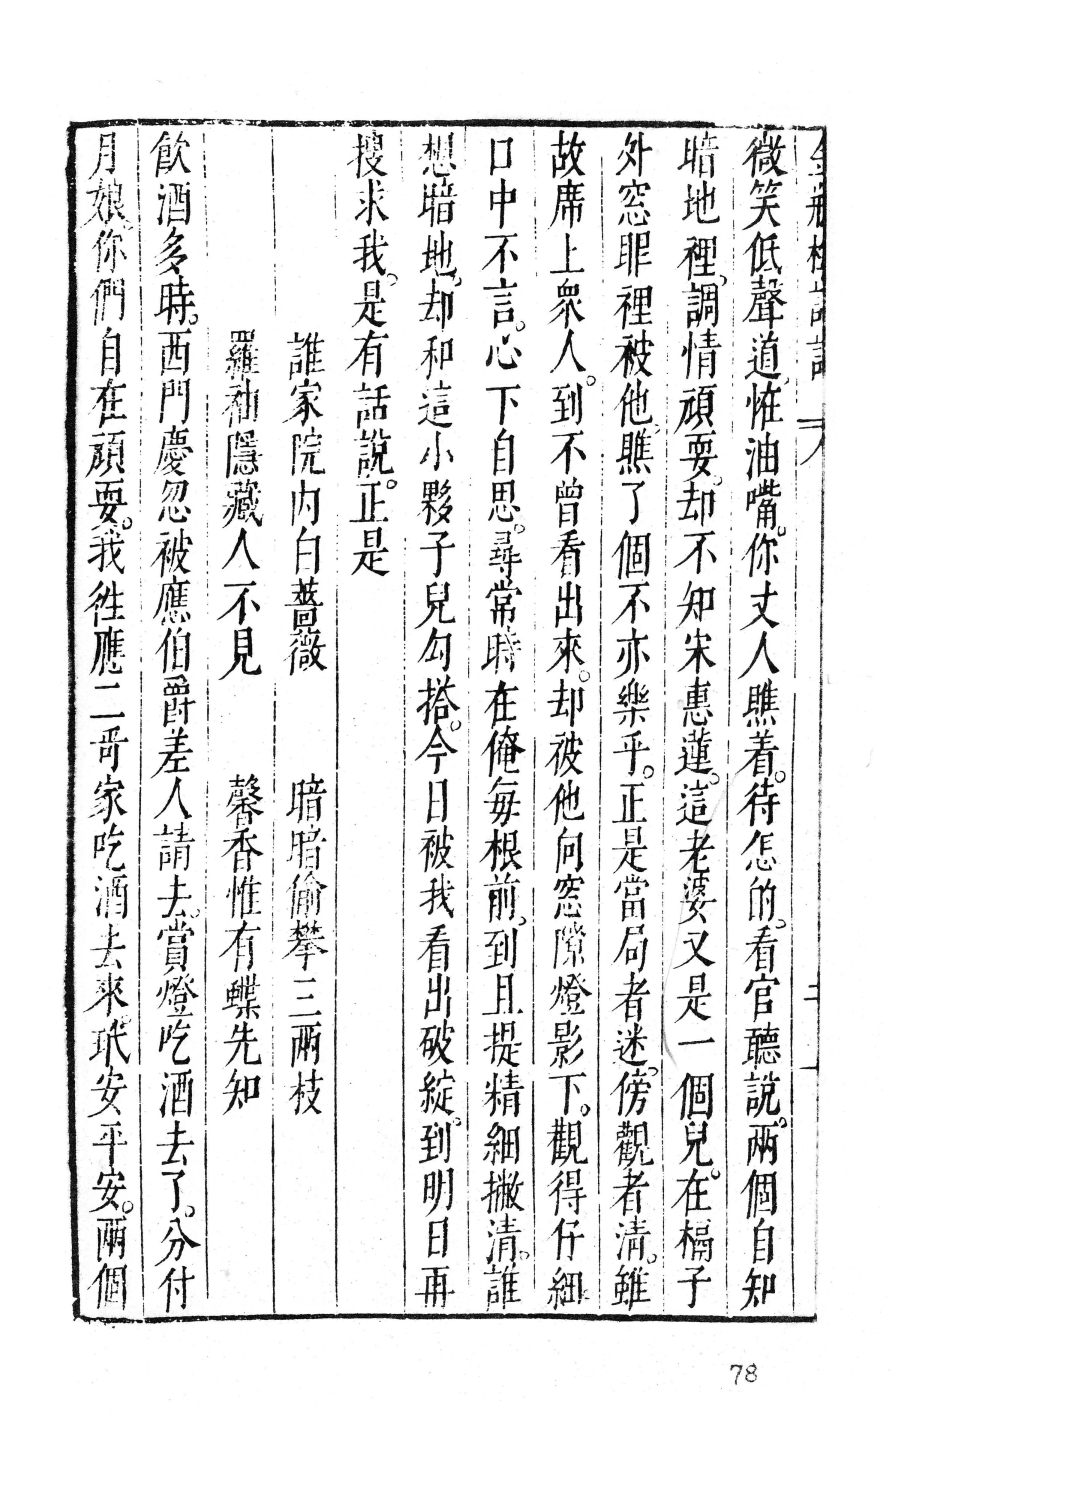 微笑低聲道。怪油嘴。你丈人瞧着。待怎的。看官聽說。兩個自知
暗地裡。調情頑耍。却不知宋惠蓮。這老婆又是一個兒。在槅子
外窓眼裡。被他瞧了個不亦樂乎。正是當局者迷。傍觀者清。雖
故席上衆人。到不曾看出來。却被他向窓隙燈影下。觀得仔細
口中不言。心下自思。尋常時在俺每根前。到且提精細撇清。誰
想暗地。却和這小夥子兒勾搭。今日被我看出破綻。到明日再
搜求我。是有話說。正是
誰家院内白薔薇　暗暗偷攀三兩枝
羅袖隱藏人不見　馨香惟有蝶先知
飲酒多時。西門慶忽被應伯爵差人請去。賞燈吃酒去了。分付
月娘。你們自在頑耍。我徃應二哥家吃酒去來。玳安平安。兩個
78